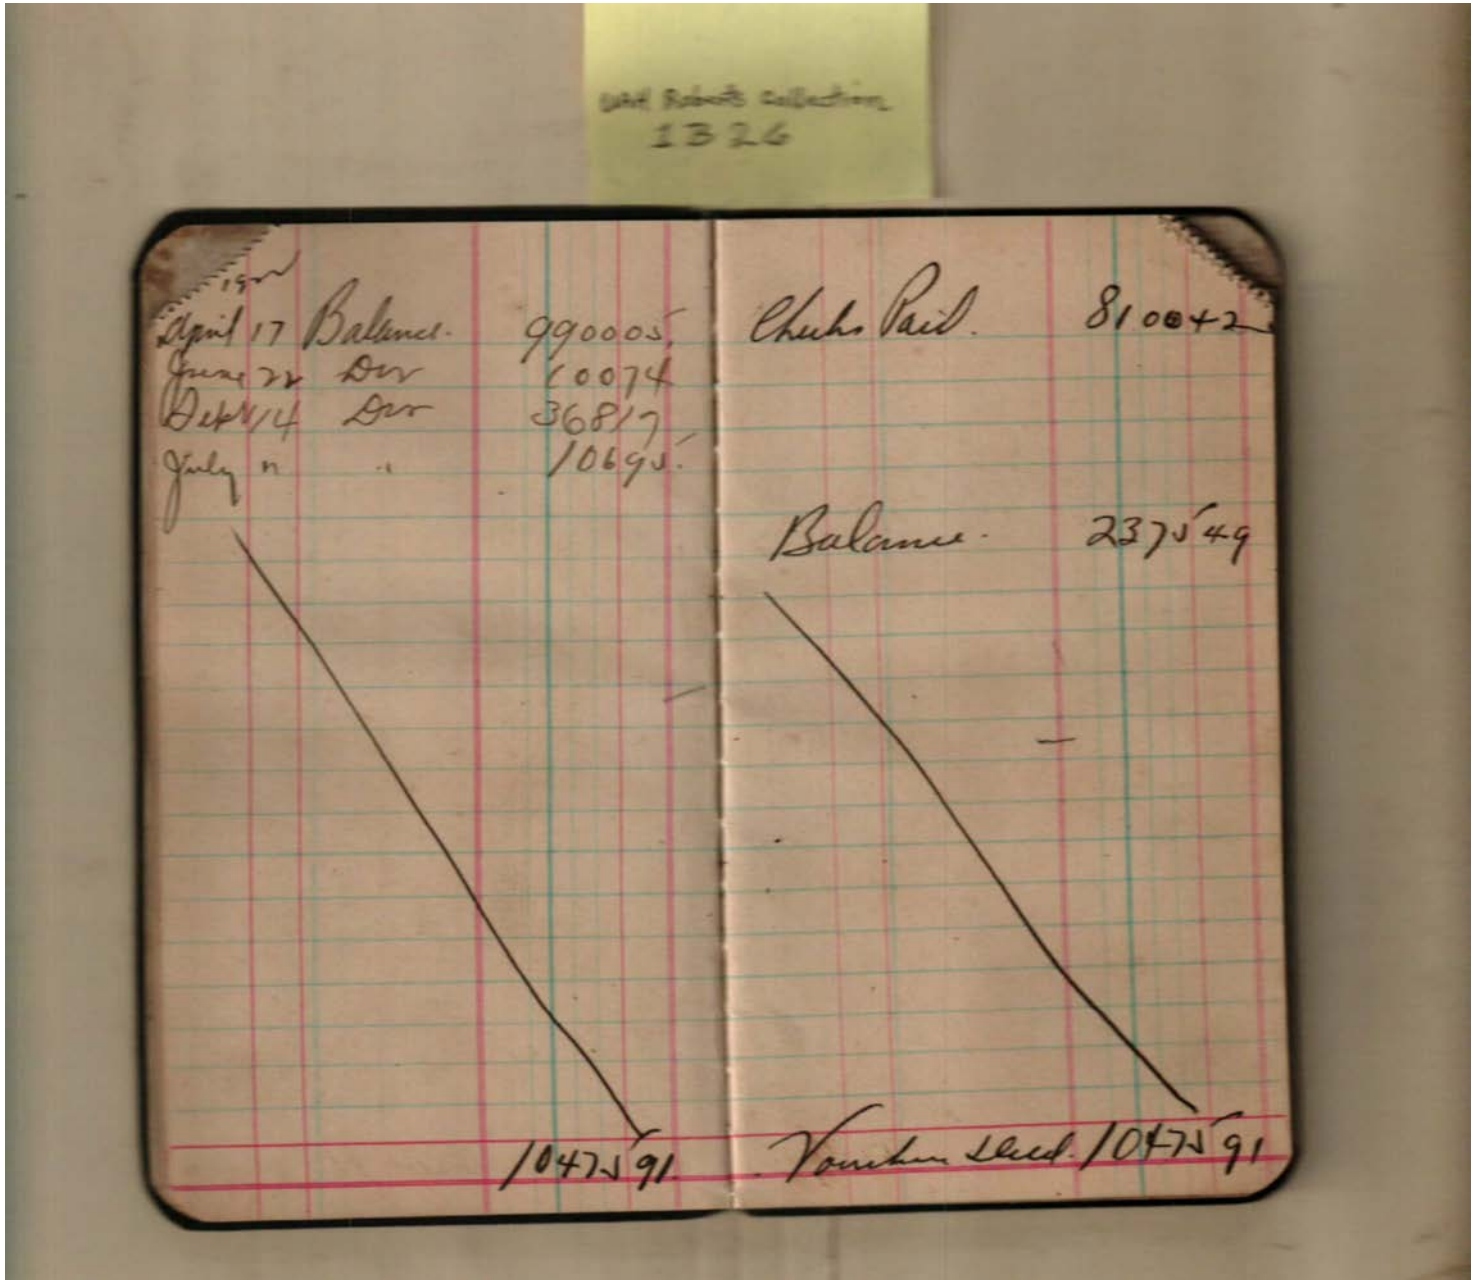 UAH Roberts Collection
1326
April 17 Balance. 990005
June 22 Div 10074
Sept 14 Div 36817
July " " 10695
1047591
Checks Paid. 810042
Balance. 237549
Vouchers 1047591